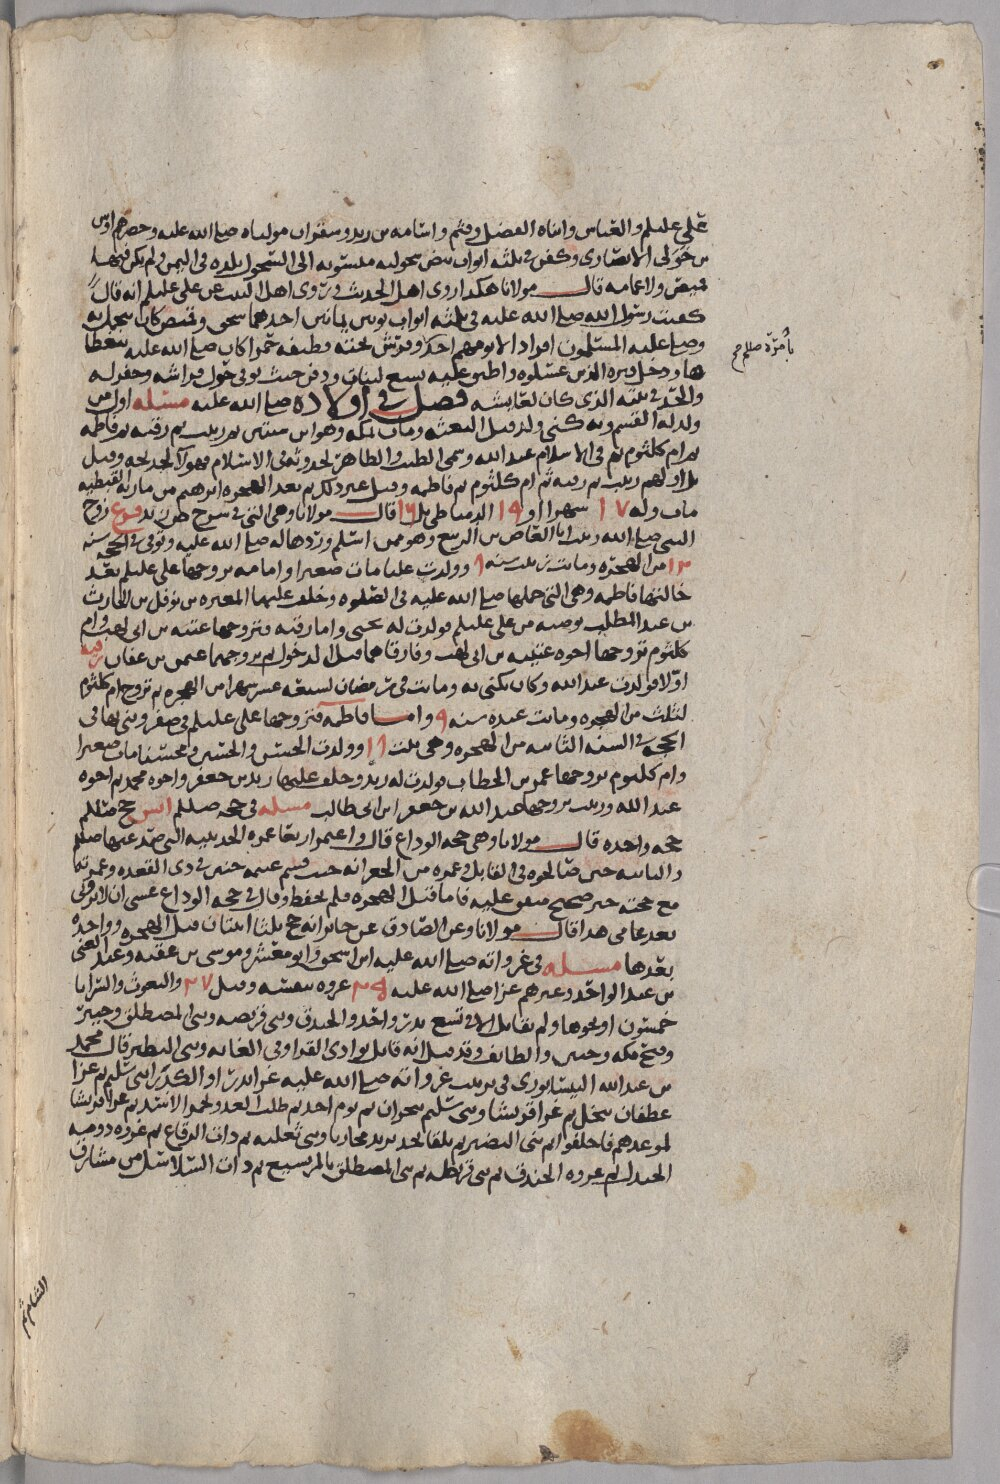 علي عليلم والعباس وابناه الفضل وقثم واسامه بن زيد وسقران مولياه صلى الله عليه وحضرهم اوس
بن خولى الانصاري وكفن في ثلثه اثواب بيض سحوليه منسوبه الى السحول بلده في اليمن لم يكن فيها
قميص ولا عمامه قال مولانا هكذا روى اهل الحديث وروى اهل البيت عن علي عليلم انه قال
كفنت رسول الله صلى الله عليه في ثلثه اثواب ثوبين يمانيين احدهما سحق وقميص كان يتجمل به
وصلى عليه المسلمون افرادا لا يومهم احد وفرش تحته قطيفه حمرا كان صلى الله عليه يتغطا
بها ودخل قبره الذين غسلوه واطبق عليه تسع لبنات ودفن حيث توفي حول فراشه وحفر له
والحد في بيته الذي كان لعايشه فصل في اولاده صلى الله عليه مسئله اول من
ولد له القسم وبه كنى ولد قبل البعثه ومات بمكه وهو ابن سنتين ثم زينب ثم رقيه ثم فاطمه
ثم ام كلثوم ثم في الاسلام عبد الله وسمى الطيب والطاهر لحدوثه في الاسلام فهولا لخديجه وقيل
بل اولهم زينب ثم رقيه ثم ام كلثوم ثم فاطمه وقيل غير ذلك ثم بعد الهجره ابرهيم من ماريه القبطيه
مات وله ١٧ شهرا او ١٩ الدمياطي بل ١٦ قال مولانا وهي التي في شرح فرع زوج
النبي صلى الله زينب ابا العاص بن الربيع وهو ممن اسلم وردها له صلى الله عليه وتوفي في الحجه سنه
١٢ من الهجره وماتت زينب سنه ٨ وولدت عليا مات صغيرا وامامه تزوجها علي عليلم بعد
خالتها فاطمه وهي التي حملها صلى الله عليه في الصلوه وخلف عليها المغيره بن نوفل بن الحارث
بن عبد المطلب بوصيه من علي عليلم فولدت له يحيى واما رقيه فتزوجها عتبه بن ابي لهب وام
كلثوم تزوجها اخوه عتيبه بن ابي لهب وفارقاهما قبل الدخول ثم تزوجهما عثمن بن عفان رقيه
اولا فولدت عبد الله وكان يكنى به وماتت في رمضان لسبعه عشر شهرا من الهجره ثم تزوج ام كلثوم
لثلث من الهجره وماتت عنده سنه ٩ واما فاطمه فتزوجها علي عليلم في صفر وبنى بها في
الحجه في السنه الثانيه من الهجره وهي بنت ١٨ وولدت الحسن والحسين ومحسنا مات صغيرا
وام كلثوم تزوجها عمر بن الخطاب فولدت له زيد وخلف عليها زيد بن جعفر واخوه محمد ثم اخوه
عبد الله وزينب تزوجها عبد الله بن جعفر ابن ابي طالب مسئله في حجه صللم انس حج صللم
حجه واحده قال مولانا وهي حجه الوداع قال واعتمر اربعا عمره الحديبيه التي صد عنها صللم
والثانيه حين صالحوه في القابل وعمره من الجعرانه حيث قسم غنيمه حنين في ذي القعده وعمرته
مع حجته خبر صحيح متفق عليه فاما قبل الهجره فلم يحفظ وقال في حجه الوداع عسى ان لا تروني
بعد عامي هذا قال مولانا وعن الصادق عن جابر انه حج ثلثا اثنتان قبل الهجره وواحده
بعدها مسئله في غزواته صلى الله عليه ابن اسحق وابو معشر وموسى بن عقبه وعبد الغني
بن عبد الواحد وغيرهم غزا صلى الله عليه ٢٥ غزوه بنفسه وقيل ٢٧ والبعوث والسرايا
خمسون او نحوها ولم يقاتل الا في تسع بدر واحد والخندق وبني قريضه وبني المصطلق وخيبر
وفتح مكه وحنين والطائف وقد قيل انه قاتل بوادي القرا وفي الغابه وبني النظير قال محمد
بن عبد الله النيسابوري في ترتيب غزواته صلى الله عليه غزا بدرا والكدر ابني سليم ثم غزا
غطفان بنخل ثم غزا قريشا وبني سليم ببحران ثم يوم احد ثم طلب العدو بحمرا الاسد ثم غزا قريشا
لموعدهم فاخلفوا ثم بني النضير ثم تلقا نجد يريد محاربا وبني ثعلبه ثم ذات الرقاع ثم غزوه دومه
الجندل ثم غزوه الخندق ثم بني قريظه ثم بني المصطلق بالمريسيع ثم ذات السلاسل من مشارف
بأمره صللم صح
الشام ثم